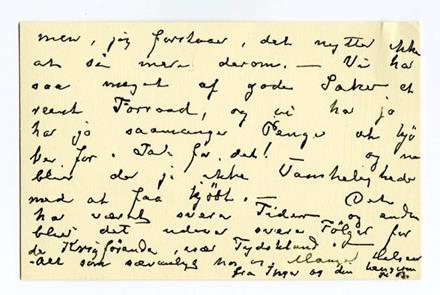 men, jeg forstaar, det nytter ikke
at si mere derom. – Vi har
saa meget af gode Saker et
reent Forraad, og vi har jo
har jo saamange Penger at kjö
be for. Tak for det! – og nu
blir der jo ikke Vanskeligheder
med at faa kjöbt. – Det
har været svære Tider og endnu
blir det svære Fölger for
de Krigförende, især Tydskland.
Alt som sævanligt hos os. Mange Helsen
fra Inger og din